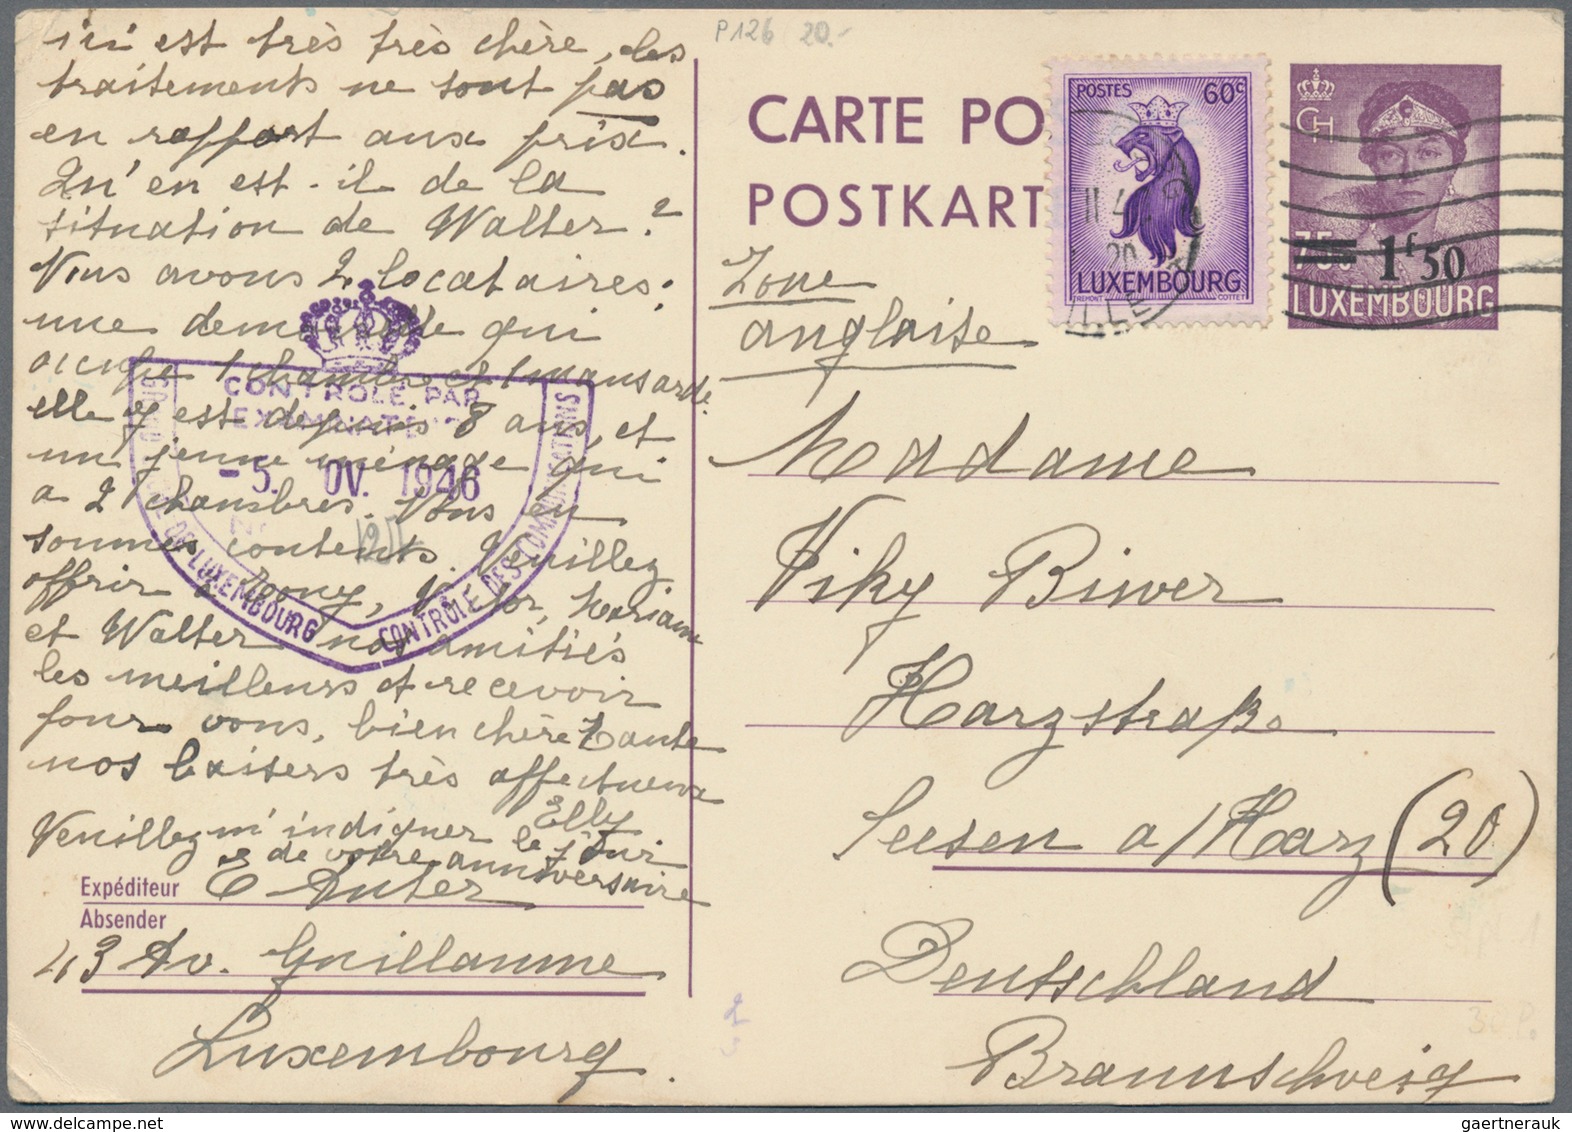 ici est très très chère, les
traitements ne sont pas
en rapport aux prix.
Qu'en est-il de la
situation de Walter?
Nous avons 2 locataires:
une demoiselle qui
occupe 1 chambre et 1 mansarde.
elle y est depuis 8 ans, et
un jeune ménage qui
a 2 chambres. Nous en
sommes contents. Veuillez
offrir à
et Walter nos amitiés
les meilleurs et recevoir
pour vous, bien chère Tante
nos baisers très affectueux
Elly
Veuillez m'indiquer le jour
de votre anniversaire
Expéditeur
Absender
43 Av. Guillaume
Luxembourg.
CONTRÔLE PAR
EXAMINATE
-5. OV. 1946
DE LUXEMBOURG CONTRÔLE DES COMMUNICATIONS
P126 20.-
CARTE PO
POSTKART
POSTES 60c
LUXEMBOURG
CH
75c 1f50
LUXEMBOURG
Zone
anglaise
Madame
Viky Biwer
Harzstraße
Seesen a/Harz (20)
Deutschland
Braunschweig
30P.
gaertnerauk @ delcampe.net